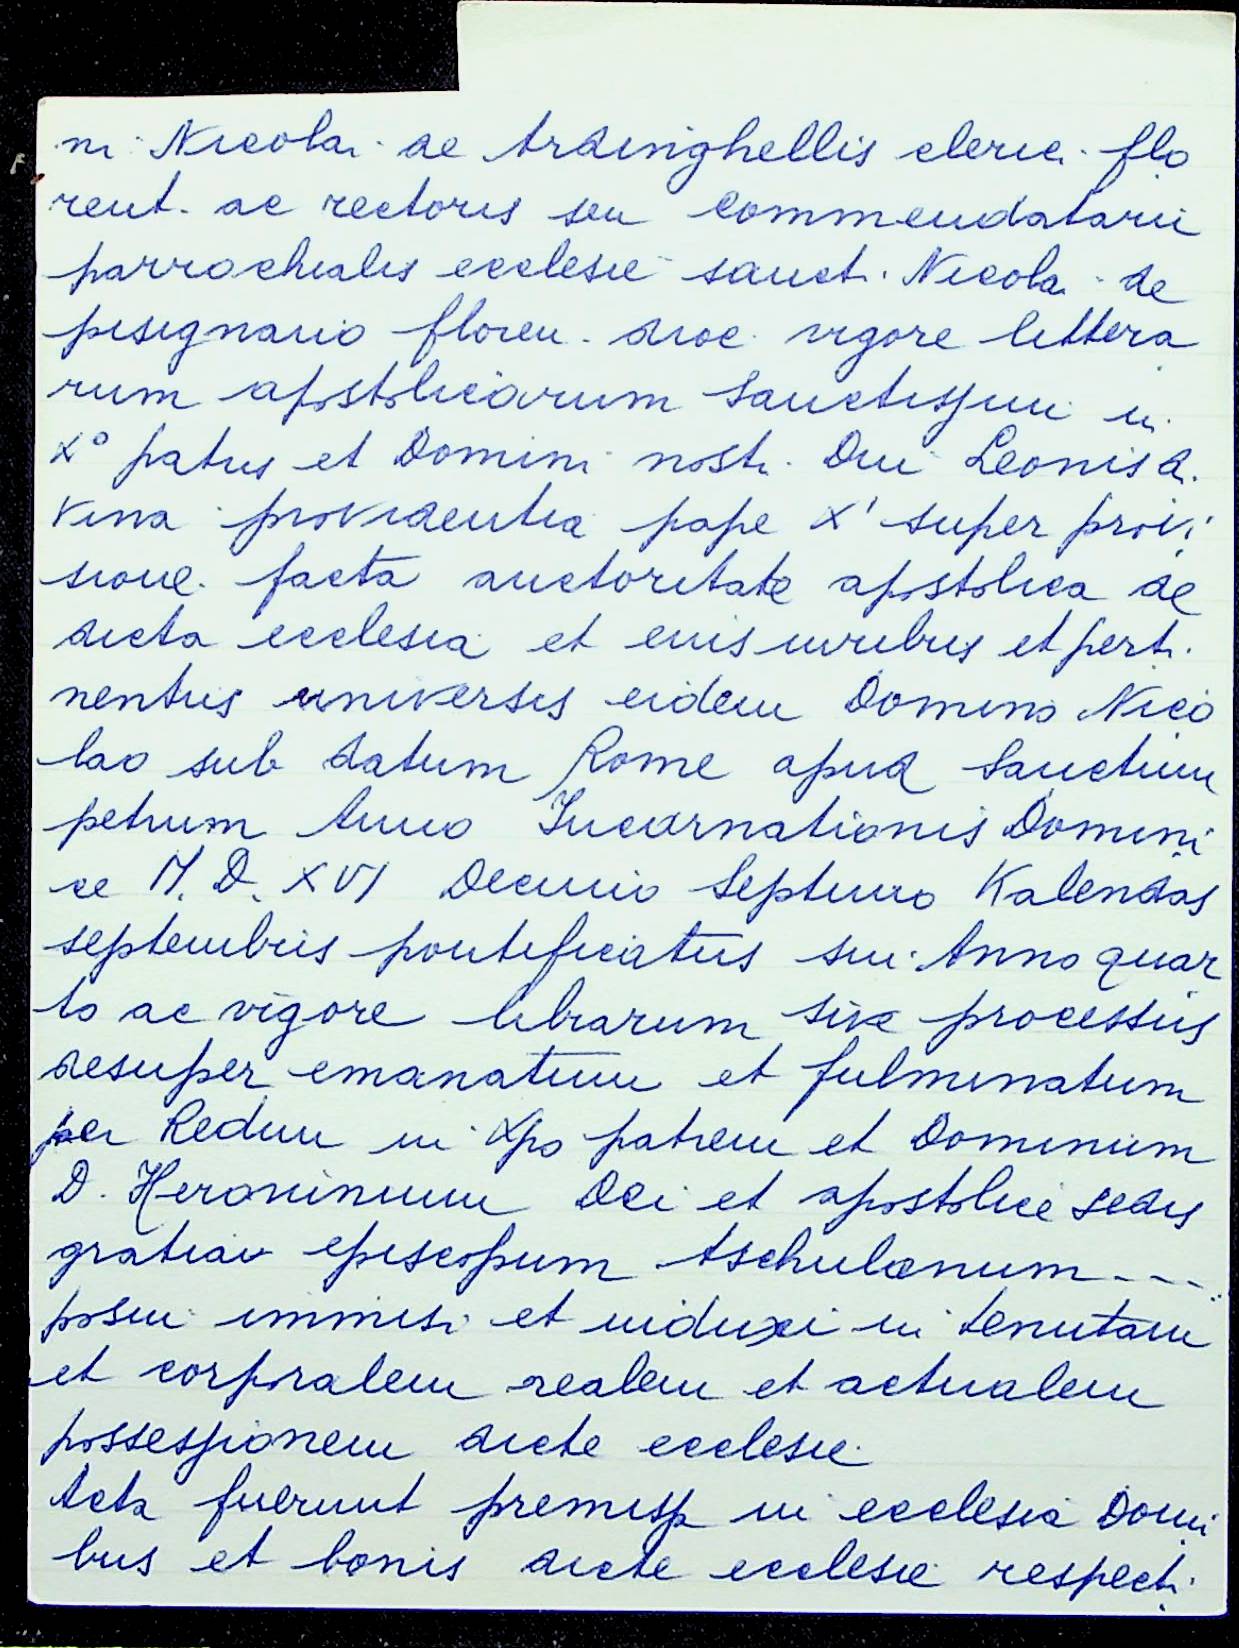 ni Nicolai de Ardinghellis cleric. flo
rent. ac rectoris seu commendatarii
parrochialis ecclesie sancti Nicolai de
pisignano floren. dioc. vigore littera
rum apostolicarum Sanctissimi in
Xº patris et Domini nostri Dni Leonis di
vina providentia pape Xi super provi
sione facta auctoritate apostolica de
dicta ecclesia et eius iuribus et perti
nentiis universis eidem Domino Nico
lao sub datum Rome apud Sanctum
petrum Anno Incarnationis Domini
ce M.D.XVI Decimo Septimo Kalendas
septembris pontificatus sui Anno quar
to ac vigore librarum sive processus
desuper emanatum et fulminatum
per Redum in Xpo patrem et Dominum
D. Heronimum Dei et apostolice sedis
gratia episcopum Aschulanum ----
posui immisi et induxi in tenutam
et corporalem realem et actualem
possessionem dicte ecclesie
Acta fuerunt premissa in ecclesia Domi
bus et bonis dicte ecclesie respecti